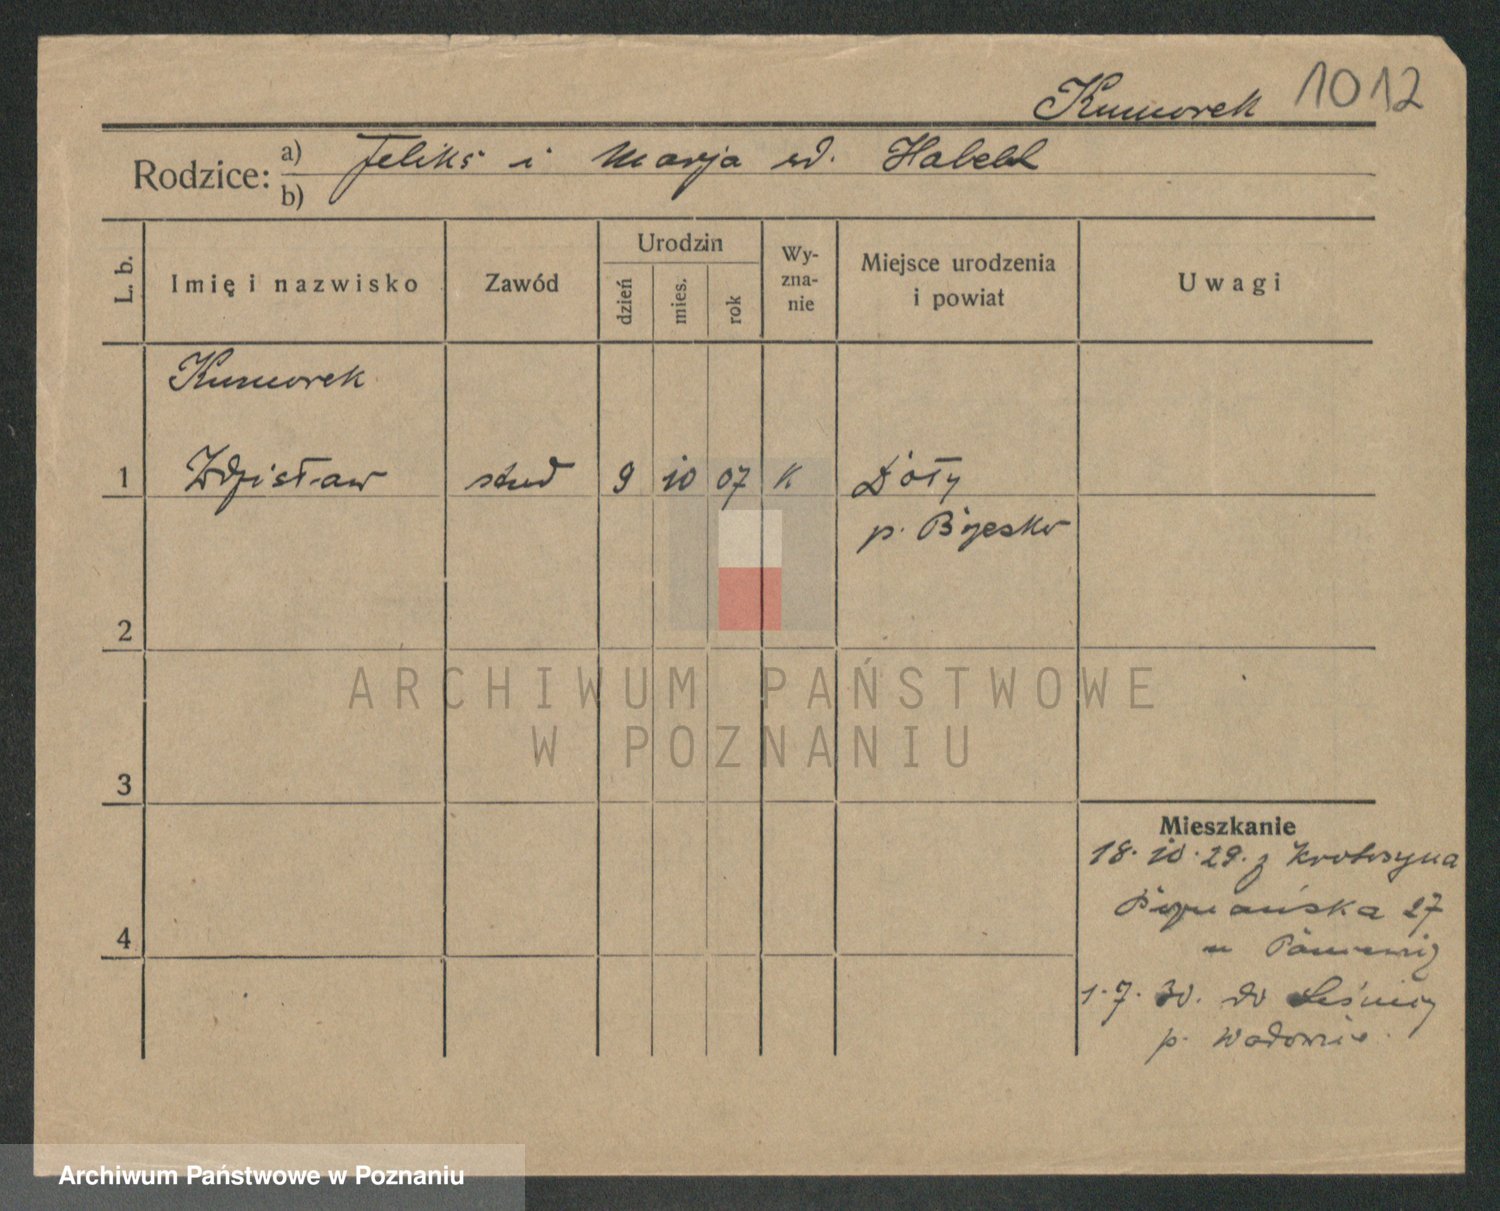 Kumorek 1012
Rodzice: a) Feliks i Marja zd.
b)
L. b.
Imię i nazwisko
Zawód
Urodzin
dzień
mies.
rok
Wy-
zna-
nie
Miejsce urodzenia
i powiat
Uwagi
Kumorek
1 Zdzisław stud 9 10 07 K Doły
p. Brzesko
2
ARCHIWUM PAŃSTWOWE
W POZNANIU
3
Mieszkanie
18. 10. 29. z Krotoszyna
27
4
1. 7. 30. do
p. Wadowic
Archiwum Państwowe w Poznaniu